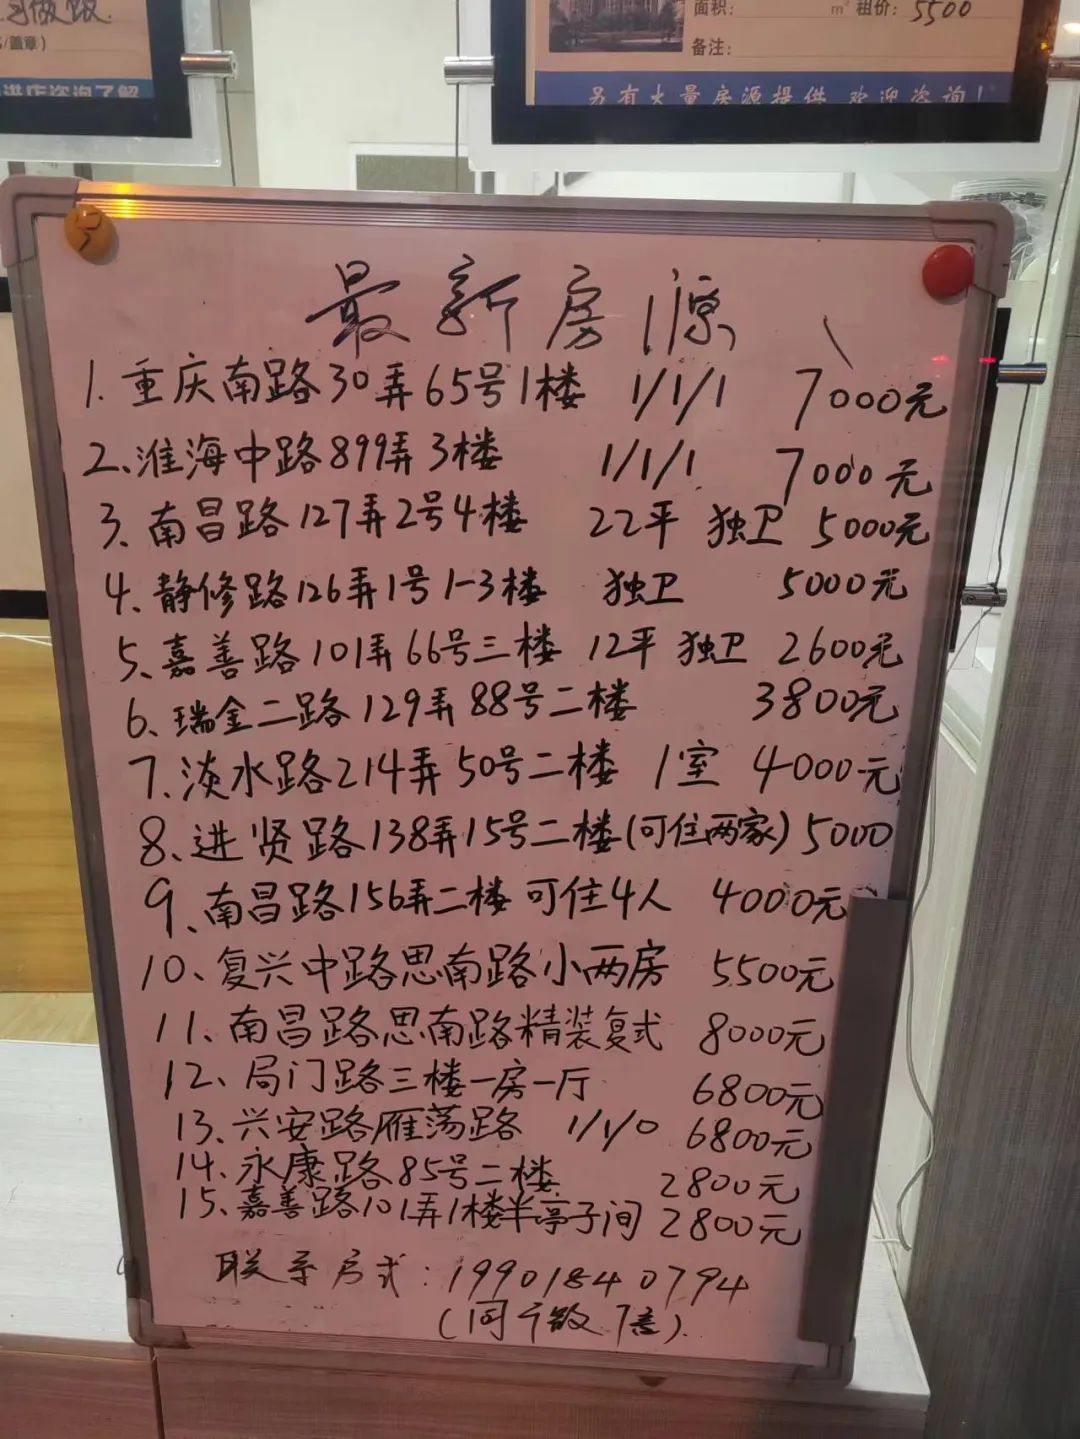 /盖章)
进店咨询了解
面积: m² 租价: 5500
备注:
另有大量房源提供 欢迎咨询!
最新房源
1. 重庆南路30弄65号1楼 1/1/1 7000元
2、淮海中路899弄3楼 1/1/1 7000元
3、南昌路127弄2号4楼 22平 独卫 5000元
4、静修路126弄1号1-3楼 独卫 5000元
5、嘉善路101弄66号三楼 12平 独卫 2600元
6、瑞金二路129弄88号二楼 3800元
7、淡水路214弄50号二楼 1室 4000元
8、进贤路138弄15号二楼(可住两家) 5000
9、南昌路156弄二楼 可住4人 4000元
10、复兴中路思南路小两房 5500元
11、南昌路思南路精装复式 8000元
12、局门路三楼一房一厅 6800元
13、兴安路雁荡路 1/1/0 6800元
14、永康路85号二楼 2800元
15、嘉善路101弄1楼半亭子间 2800元
联系方式: 19901840794
(同